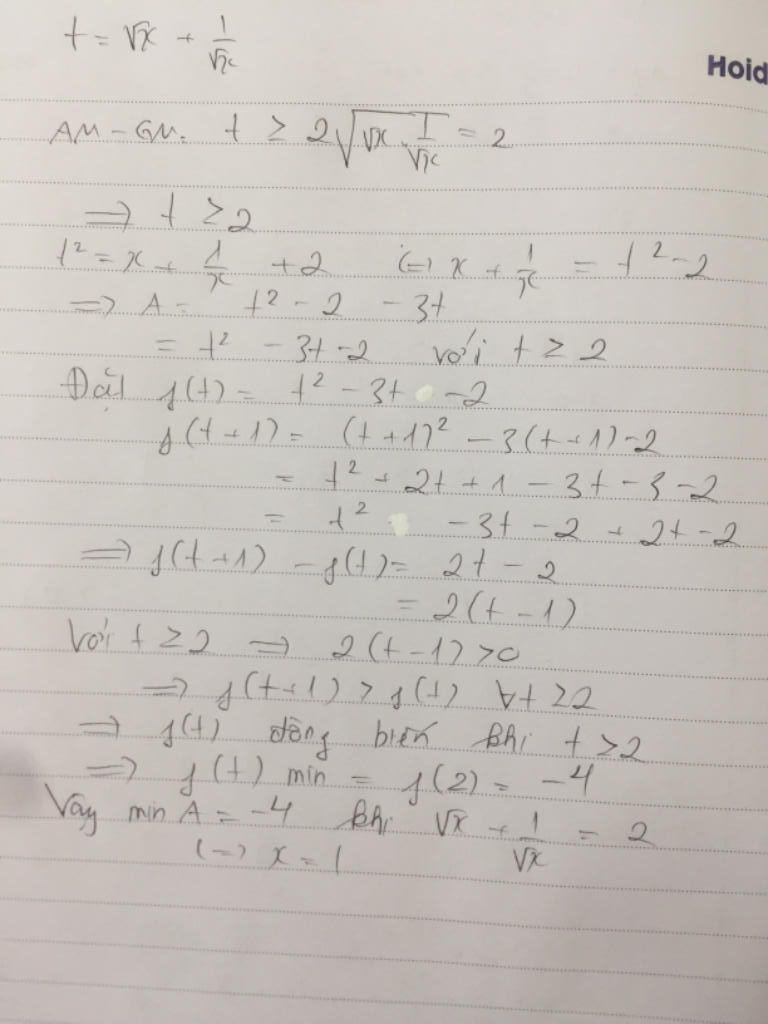 t = √x + 1/√x
Hoid
AM - GM: t ≥ 2√(√x . 1/√x) = 2
⇒ t ≥ 2
t² = x + 1/x + 2 (=) x + 1/x = t² - 2
⇒ A = t² - 2 - 3t
= t² - 3t - 2 với t ≥ 2
Đặt f(t) = t² - 3t - 2
f(t+1) = (t+1)² - 3(t+1) - 2
= t² + 2t + 1 - 3t - 3 - 2
= t² - 3t - 2 + 2t - 2
⇒ f(t+1) - f(t) = 2t - 2
= 2(t - 1)
Với t ≥ 2 ⇒ 2(t - 1) > 0
⇒ f(t+1) > f(t) ∀t ≥ 2
⇒ f(t) đồng biến khi t ≥ 2
⇒ f(t) min = f(2) = -4
Vậy min A = -4 khi √x + 1/√x = 2
(=) x = 1